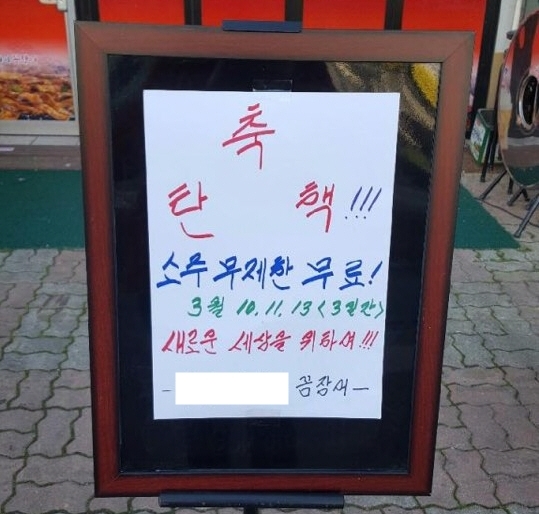 축
탄 핵!!!
소주 무제한 무료!
3월 10. 11. 13 <3일간>
새로운 세상을 위하여!!!
- 꼼장어 -